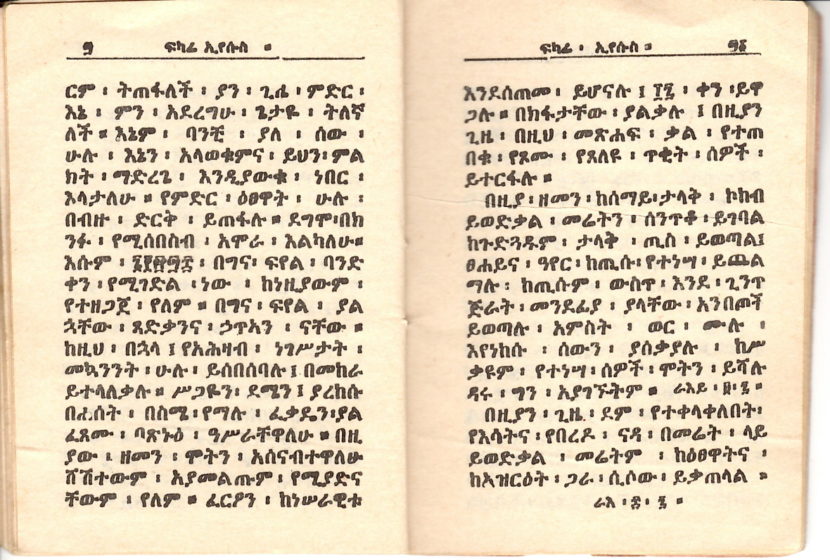 ፶ ፍካሬ ኢየሱስ ።
ርም ፡ ትጠፋለች ፡ ያን ፡ ጊሔ ፡ ምድር ፡
እኔ ፡ ምን ፡ አደረግሁ ፡ ጌታዬ ፡ ትለኛ
ለች ። እኔም ፡ ባንቺ ፡ ያለ ፡ ሰው ፡
ሁሉ ፡ እኔን ፡ አላወቁምና ፡ ይህን ፡ ምል
ክት ፡ ማድረጌ ፡ እንዲያውቁ ፡ ነበር ፡
እላታለሁ ። የምድር ፡ ዕፀዋት ፡ ሁሉ ፡
በብዙ ፡ ድርቅ ፡ ይጠፋሉ ። ደግሞ ፡ በክ
ንፉ ፡ የሚሰበስብ ፡ አሞራ ፡ እልካለሁ ።
እሱም ፡ በግና ፡ ፍየል ፡ ባንድ
ቀን ፡ የሚገድል ፡ ነው ፡ ከነዚያውም ፡
የተዘጋጀ ፡ የለም ። በግና ፡ ፍየል ፡ ያል
ኋቸው ፡ ጻድቃንና ፡ ኃጥአን ፡ ናቸው ።
ከዚህ ፡ በኋላ ፤ የአሕዛብ ፡ ነገሥታት ፡
መኳንንት ፡ ሁሉ ፡ ይሰበሰባሉ ፤ በመከራ
ይተላለቃሉ ። ሥጋዬን ፡ ደሜን ፤ ያረከሱ
በሐሰት ፡ በስሜ ፡ የማሉ ፡ ፈቃዴን ፡ ያል
ፈጸሙ ፡ ባጽኑዕ ፡ ዓሥራቸዋለሁ ። በዚ
ያው ፡ ዘመን ፡ ሞትን ፡ አሰናብተዋለሁ
ሸሽተውም ፡ አያመልጡም ፡ የሚያድና
ቸውም ፡ የለም ። ፈርዖን ፡ ከነሠራዊቱ
ፍካሬ ፡ ኢየሱስ ።
እንደሰጠመ ፡ ይሆናሉ ፤ ፲፪ ፡ ቀን ፡ ይዋ
ጋሉ ። በክፋታቸው ፡ ያልቃሉ ፤ በዚያን
ጊዜ ፡ በዚህ ፡ መጽሐፍ ፡ ቃል ፡ የተጠ
በቁ ፡ የጾሙ ፡ የጸለዩ ፡ ጥቂት ፡ ሰዎች ፡
ይተርፋሉ ።
በዚያ ፡ ዘመን ፡ ከሰማይ ፡ ታላቅ ፡ ኮከብ
ይወድቃል ፡ መሬትን ፡ ሰንጥቆ ፡ ይገባል
ከጉድጓዱም ፡ ታላቅ ፡ ጢስ ፡ ይወጣል ፤
ፀሐይና ፡ ዓየር ፡ ከጢሱ ፡ የተነሣ ፡ ይጨል
ማሉ ፡ ከጢሱም ፡ ውስጥ ፡ እንደ ፡ ጊንጥ
ጅራት ፡ መንደፊያ ፡ ያላቸው ፡ አንበጦች
ይወጣሉ ፡ አምስት ፡ ወር ፡ ሙሉ ፡
እየነከሱ ፡ ሰውን ፡ ያሰቃያሉ ፡ ከሥ
ቃዩም ፡ የተነሣ ፡ ሰዎች ፡ ሞትን ፡ ይሻሉ
ዳሩ ፡ ግን ፡ አያገኙትም ። ራእይ ፡
በዚያን ፡ ጊዜ ፡ ደም ፡ የተቀላቀለበት ፡
የእሳትና ፡ የበረዶ ፡ ናዳ ፡ በመሬት ፡ ላይ
ይወድቃል ፡ መሬትም ፡ ከዕፀዋትና ፡
ከአዝርዕት ፡ ጋራ ፡ ሲሶው ፡ ይቃጠላል ።
ራእ ፡